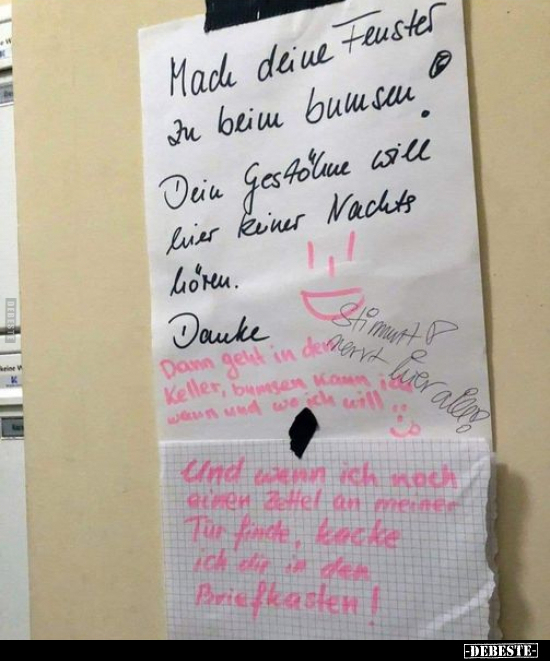 Mach deine Fenster
zu beim bumsen!
Dein Gestöhne will
hier keiner Nachts
hören.
Danke
Stimmt!
nervt hier alle!
Dann geht in den
Keller, bumsen kann ich
wann und wo ich will
Und wenn ich noch
einen Zettel an meiner
Tür finde, kacke
ich dir in den
Briefkasten!
DEBESTE
-DEBESTE-